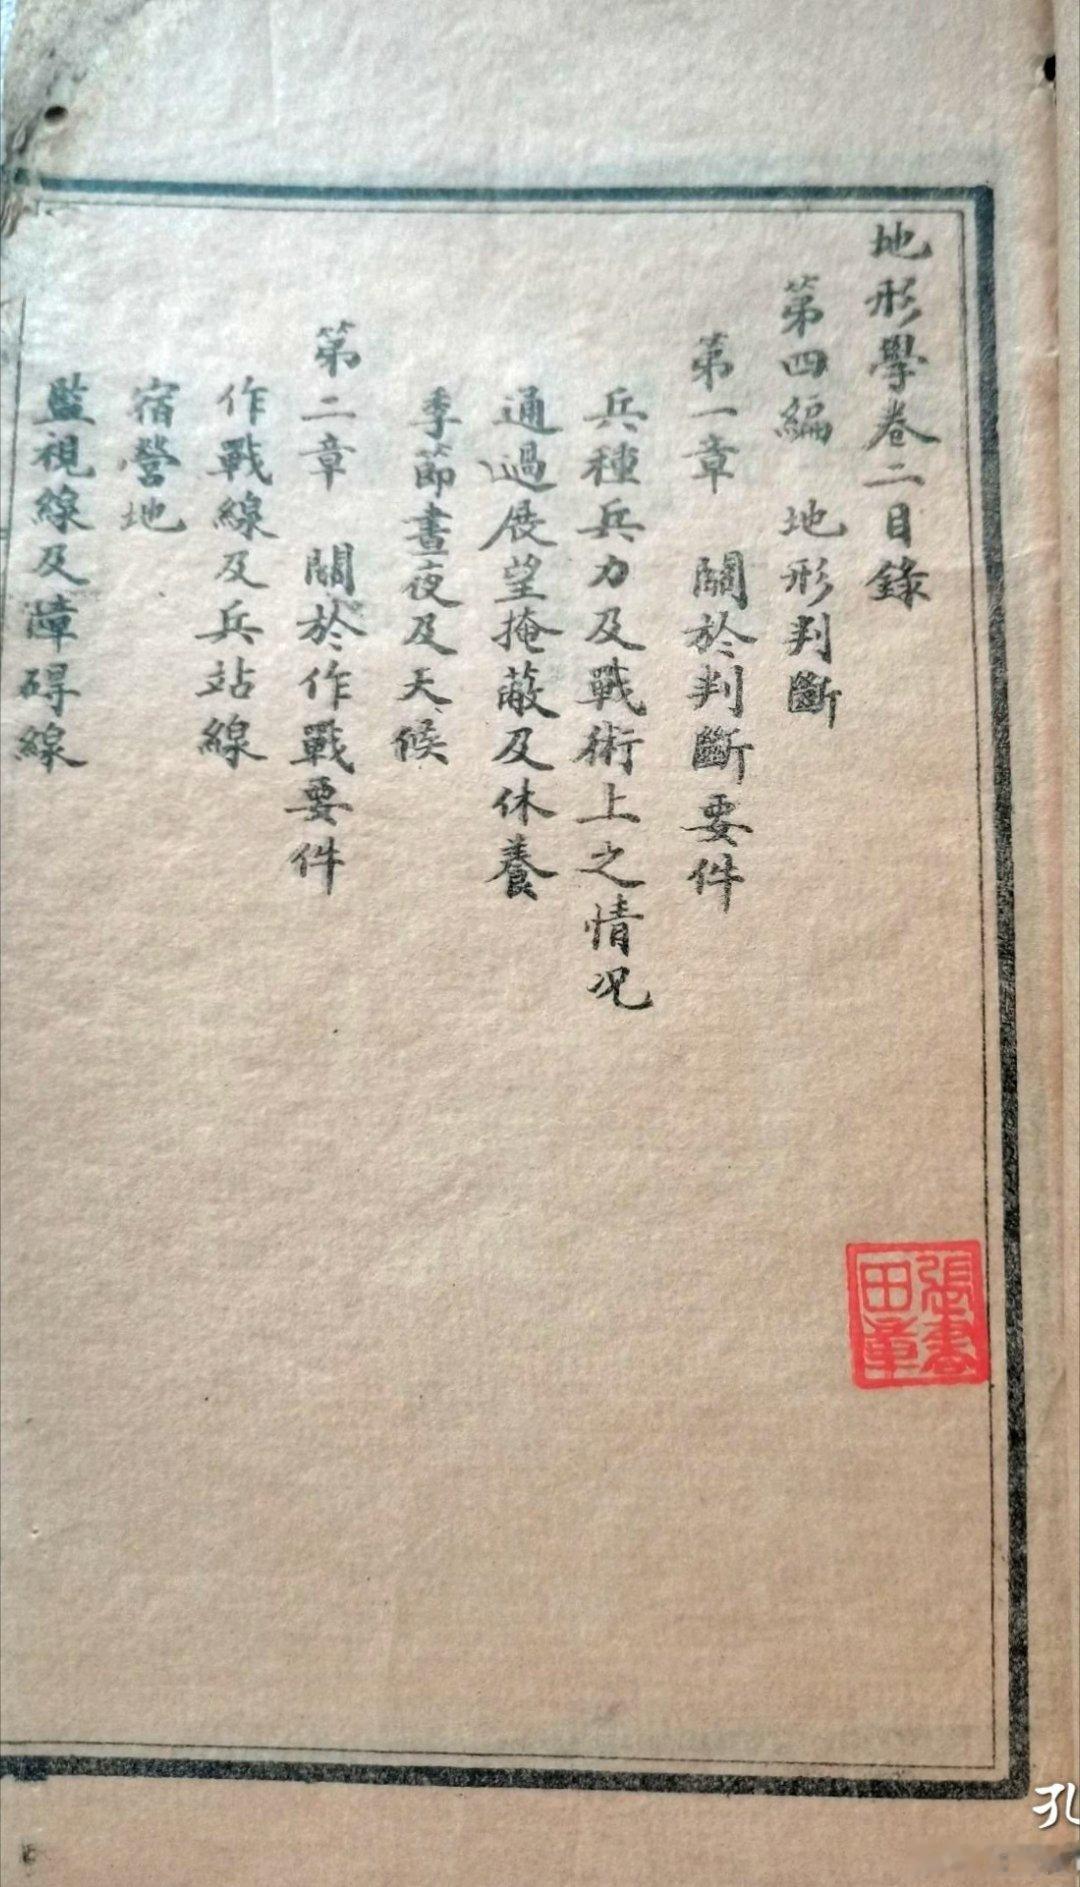 地形學卷二目錄
第四編 地形判斷
第一章 關於判斷要件
兵種兵力及戰術上之情况
通過展望掩蔽及休養
季節晝夜及天候
第二章 關於作戰要件
作戰線及兵站線
宿營地
監視線及障碍線
張書
田章
孔